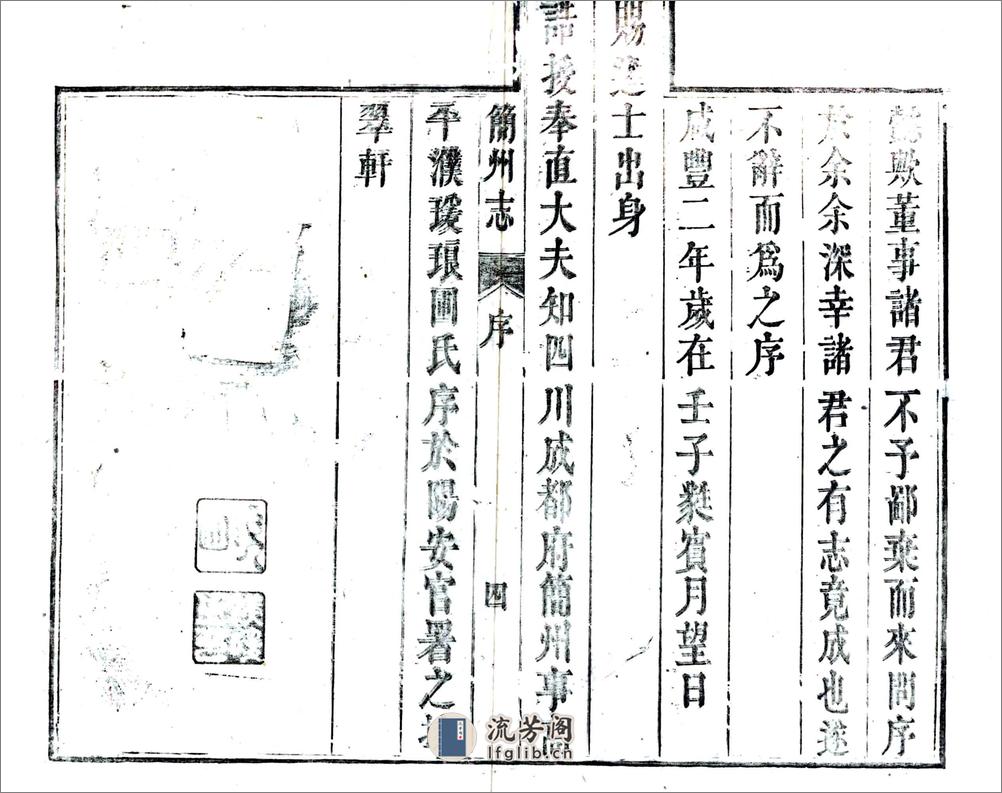 歟董事諸君不予鄙棄而來問序
於余余深幸諸君之有志竟成也遂
不辭而爲之序
咸豐二年歲在壬子蕤賓月望日
賜進士出身
誥授奉直大夫知四川成都府簡州事
簡州志 序 四
平濮瑗琅圃氏序於陽安官署之
翠軒
流芳阁
lfglib.cn